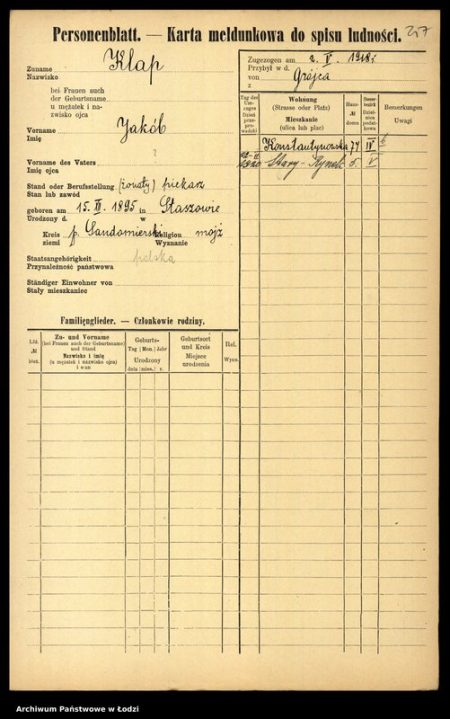 Personenblatt. — Karta meldunkowa do spisu ludności. 257
Zuname
Nazwisko
Kłap
bei Frauen auch
der Geburtsname
u mężatek i na-
zwisko ojca
Vorname
Imię
Jakób
?
Vorname des Vaters
Imię ojca
Stand oder Berufsstellung
Stan lub zawód
(żonaty) piekarz
geboren am 15. XII. 1895 in Staszowie
Urodzony d. w
Kreis p. Sandomierski Religion mojż
ziemi Wyznanie
Staatsangehörigkeit
Przynależność państwowa
polska
Ständiger Einwohner von
Stały mieszkaniec
Zugezogen am 2. V. 1918 r
Przybył w d.
von Grójca
z
Tag der
Um-
zuges
Dzień
prze-
prowadzki
Wohnung
(Strasse oder Platz)
Mieszkanie
(ulica lub plac)
Haus-
№
domu
Bemerkungen
Uwagi
Konstantynowska 74 IV
1920 Stary-Rynek 5. V
Familienglieder. — Członkowie rodziny.
Lfd.
№
bież.
Zu- und Vorname
(bei Frauen auch der Geburtsname)
und Stand
Nazwisko i imię
(u mężatek i nazwisko ojca)
i stan
Geburts-
Tag | Mon. | Jahr
Urodzony
dnia | mies. | r.
Geburtsort
und Kreis
Miejsce
urodzenia
Rel.
Wyzn.
Archiwum Państwowe w Łodzi